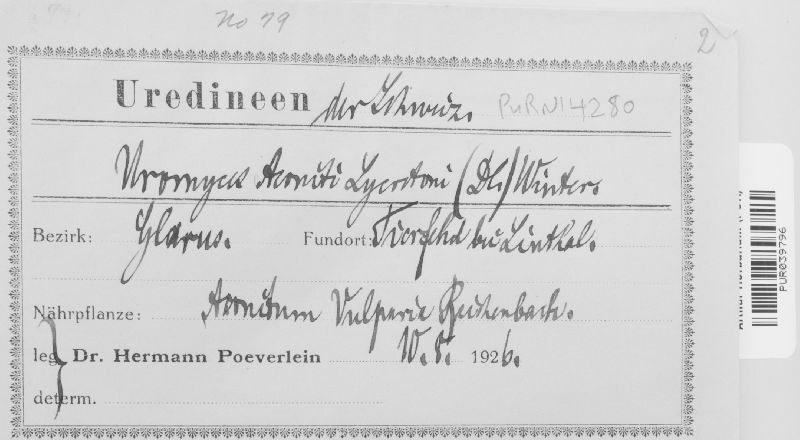 No 79
2
Uredineen der Schweiz.
PURN14280
Uromyces Aconiti Lycoctoni (DC.) Winter.
Bezirk: Glarus. Fundort: Tierfehd bei Linthal.
Nährpflanze: Aconitum Vulparia Reichenbach.
leg. Dr. Hermann Poeverlein 10. 8. 1926.
determ.
PUR039796